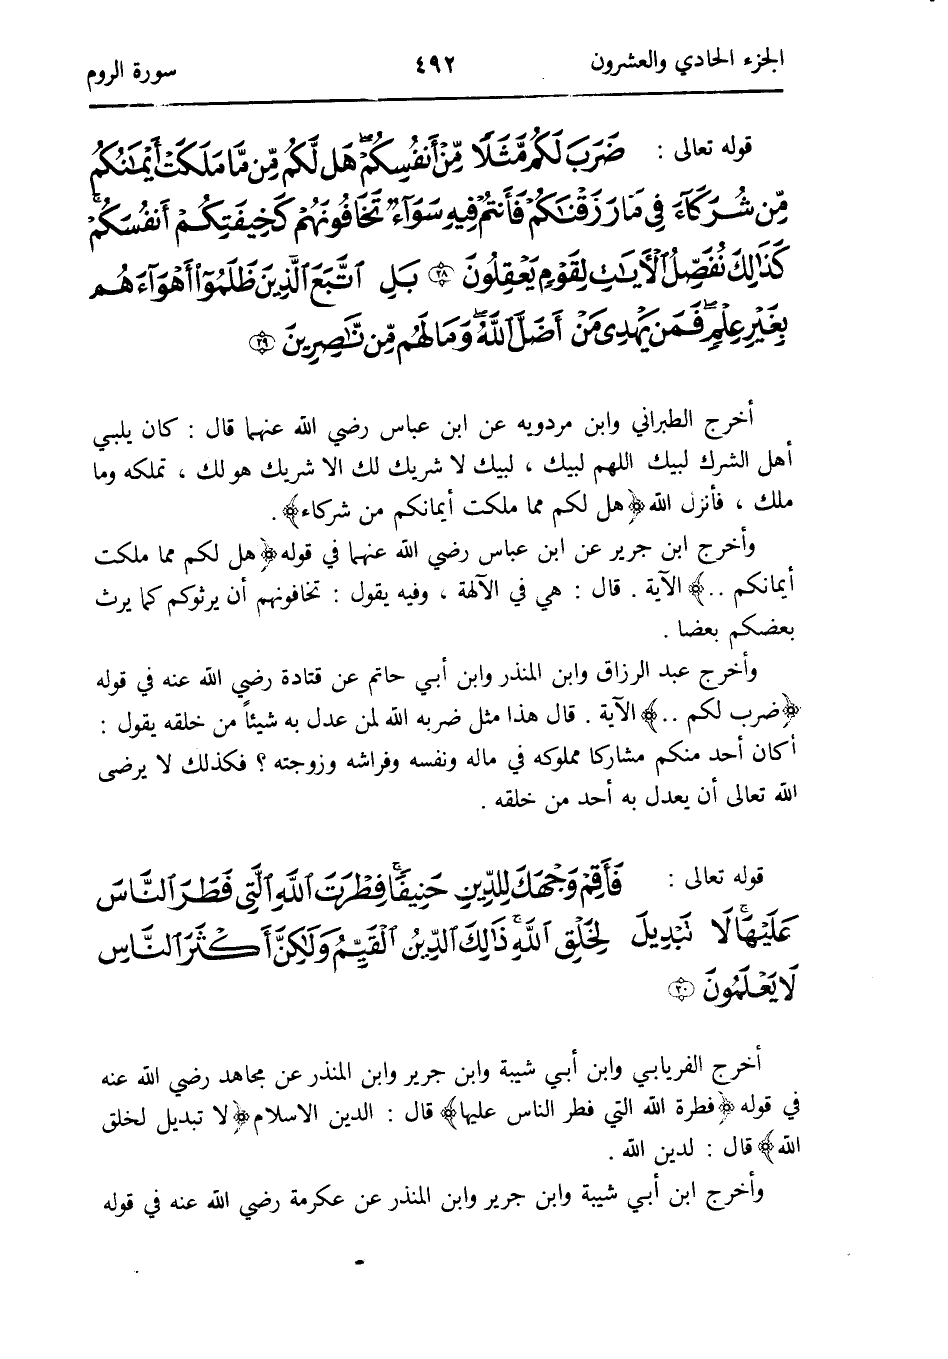 الجزء الحادي والعشرون ٤٩٢ سورة الروم
قوله تعالى : ضَرَبَ لَكُم مَّثَلًا مِّنْ أَنفُسِكُمْ ۖ هَل لَّكُم مِّن مَّا مَلَكَتْ أَيْمَٰنُكُم
مِّن شُرَكَآءَ فِى مَا رَزَقْنَٰكُمْ فَأَنتُمْ فِيهِ سَوَآءٌ تَخَافُونَهُمْ كَخِيفَتِكُمْ أَنفُسَكُمْ ۚ
كَذَٰلِكَ نُفَصِّلُ ٱلْأَيَٰتِ لِقَوْمٍ يَعْقِلُونَ ٢٨ بَلِ ٱتَّبَعَ ٱلَّذِينَ ظَلَمُوٓا۟ أَهْوَآءَهُم
بِغَيْرِ عِلْمٍ ۖ فَمَن يَهْدِى مَنْ أَضَلَّ ٱللَّهُ ۖ وَمَا لَهُم مِّن نَّٰصِرِينَ ٢٩
أخرج الطبراني وابن مردويه عن ابن عباس رضي الله عنهما قال : كان يلبي
أهل الشرك لبيك اللهم لبيك ، لبيك لا شريك لك الا شريك هو لك ، تملكه وما
ملك ، فأنزل الله ﴿هل لكم مما ملكت أيمانكم من شركاء﴾ .
وأخرج ابن جرير عن ابن عباس رضي الله عنهما في قوله ﴿هل لكم مما ملكت
أيمانكم ..﴾ الآية . قال : هي في الآلهة ، وفيه يقول : تخافونهم أن يرثوكم كما يرث
بعضكم بعضا .
وأخرج عبد الرزاق وابن المنذر وابن أبي حاتم عن قتادة رضي الله عنه في قوله
﴿ضرب لكم ..﴾ الآية . قال هذا مثل ضربه الله لمن عدل به شيئاً من خلقه يقول :
أكان أحد منكم مشاركا مملوكه في ماله ونفسه وفراشه وزوجته ؟ فكذلك لا يرضى
الله تعالى أن يعدل به أحد من خلقه .
قوله تعالى : فَأَقِمْ وَجْهَكَ لِلدِّينِ حَنِيفًا ۚ فِطْرَتَ ٱللَّهِ ٱلَّتِى فَطَرَ ٱلنَّاسَ
عَلَيْهَا ۚ لَا تَبْدِيلَ لِخَلْقِ ٱللَّهِ ۚ ذَٰلِكَ ٱلدِّينُ ٱلْقَيِّمُ وَلَٰكِنَّ أَكْثَرَ ٱلنَّاسِ
لَا يَعْلَمُونَ ٣٠
أخرج الفريابي وابن أبي شيبة وابن جرير وابن المنذر عن مجاهد رضي الله عنه
في قوله ﴿فطرة الله التي فطر الناس عليها﴾ قال : الدين الاسلام ﴿لا تبديل لخلق
الله﴾ قال : لدين الله .
وأخرج ابن أبي شيبة وابن جرير وابن المنذر عن عكرمة رضي الله عنه في قوله